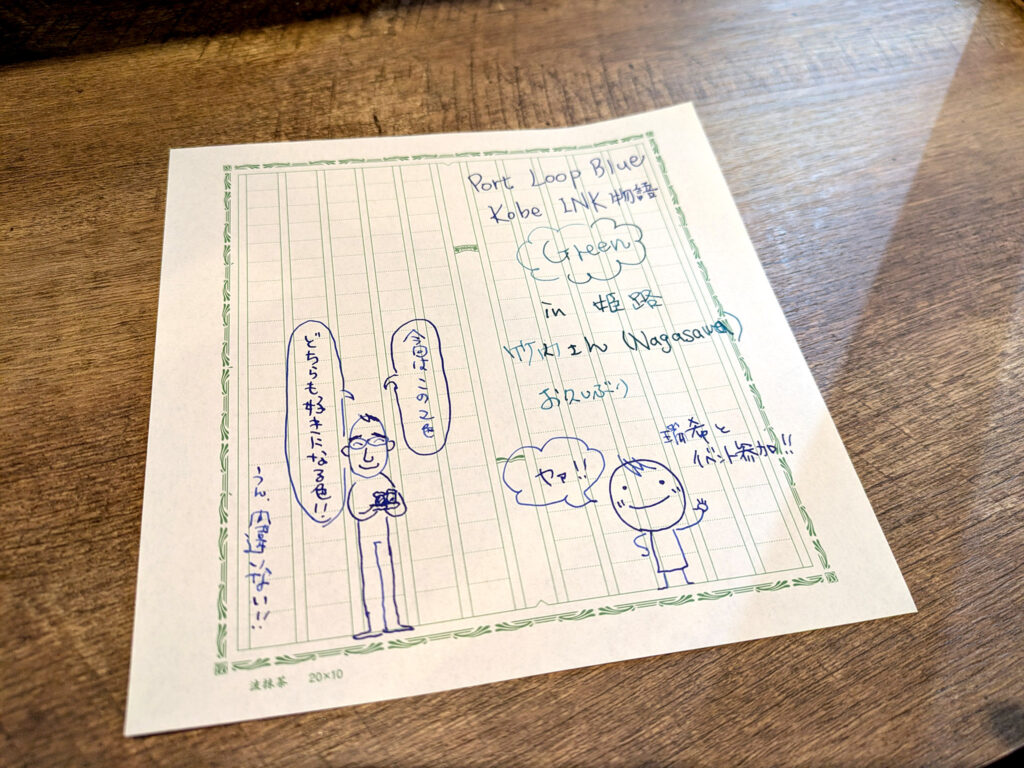 Port Loop Blue
Kobe INK物語
Green
in 姫路
竹内さん (Nagasawa)
お久しぶり
瑞希と
イベント参加!!
ヤァ!!
今回はこの2色
どちらも好きになる色!!
うん、間違いない!!
波抹茶 20×10